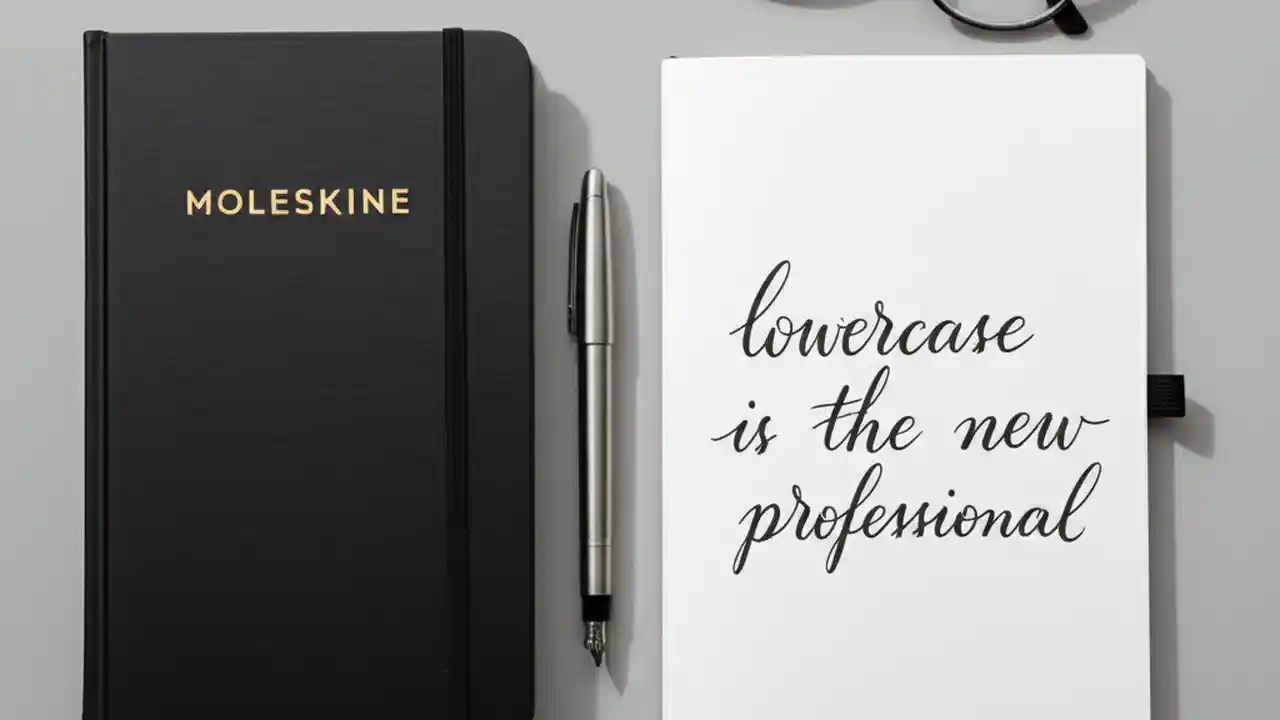 MOLESKINE
lowercase
is the new
professional